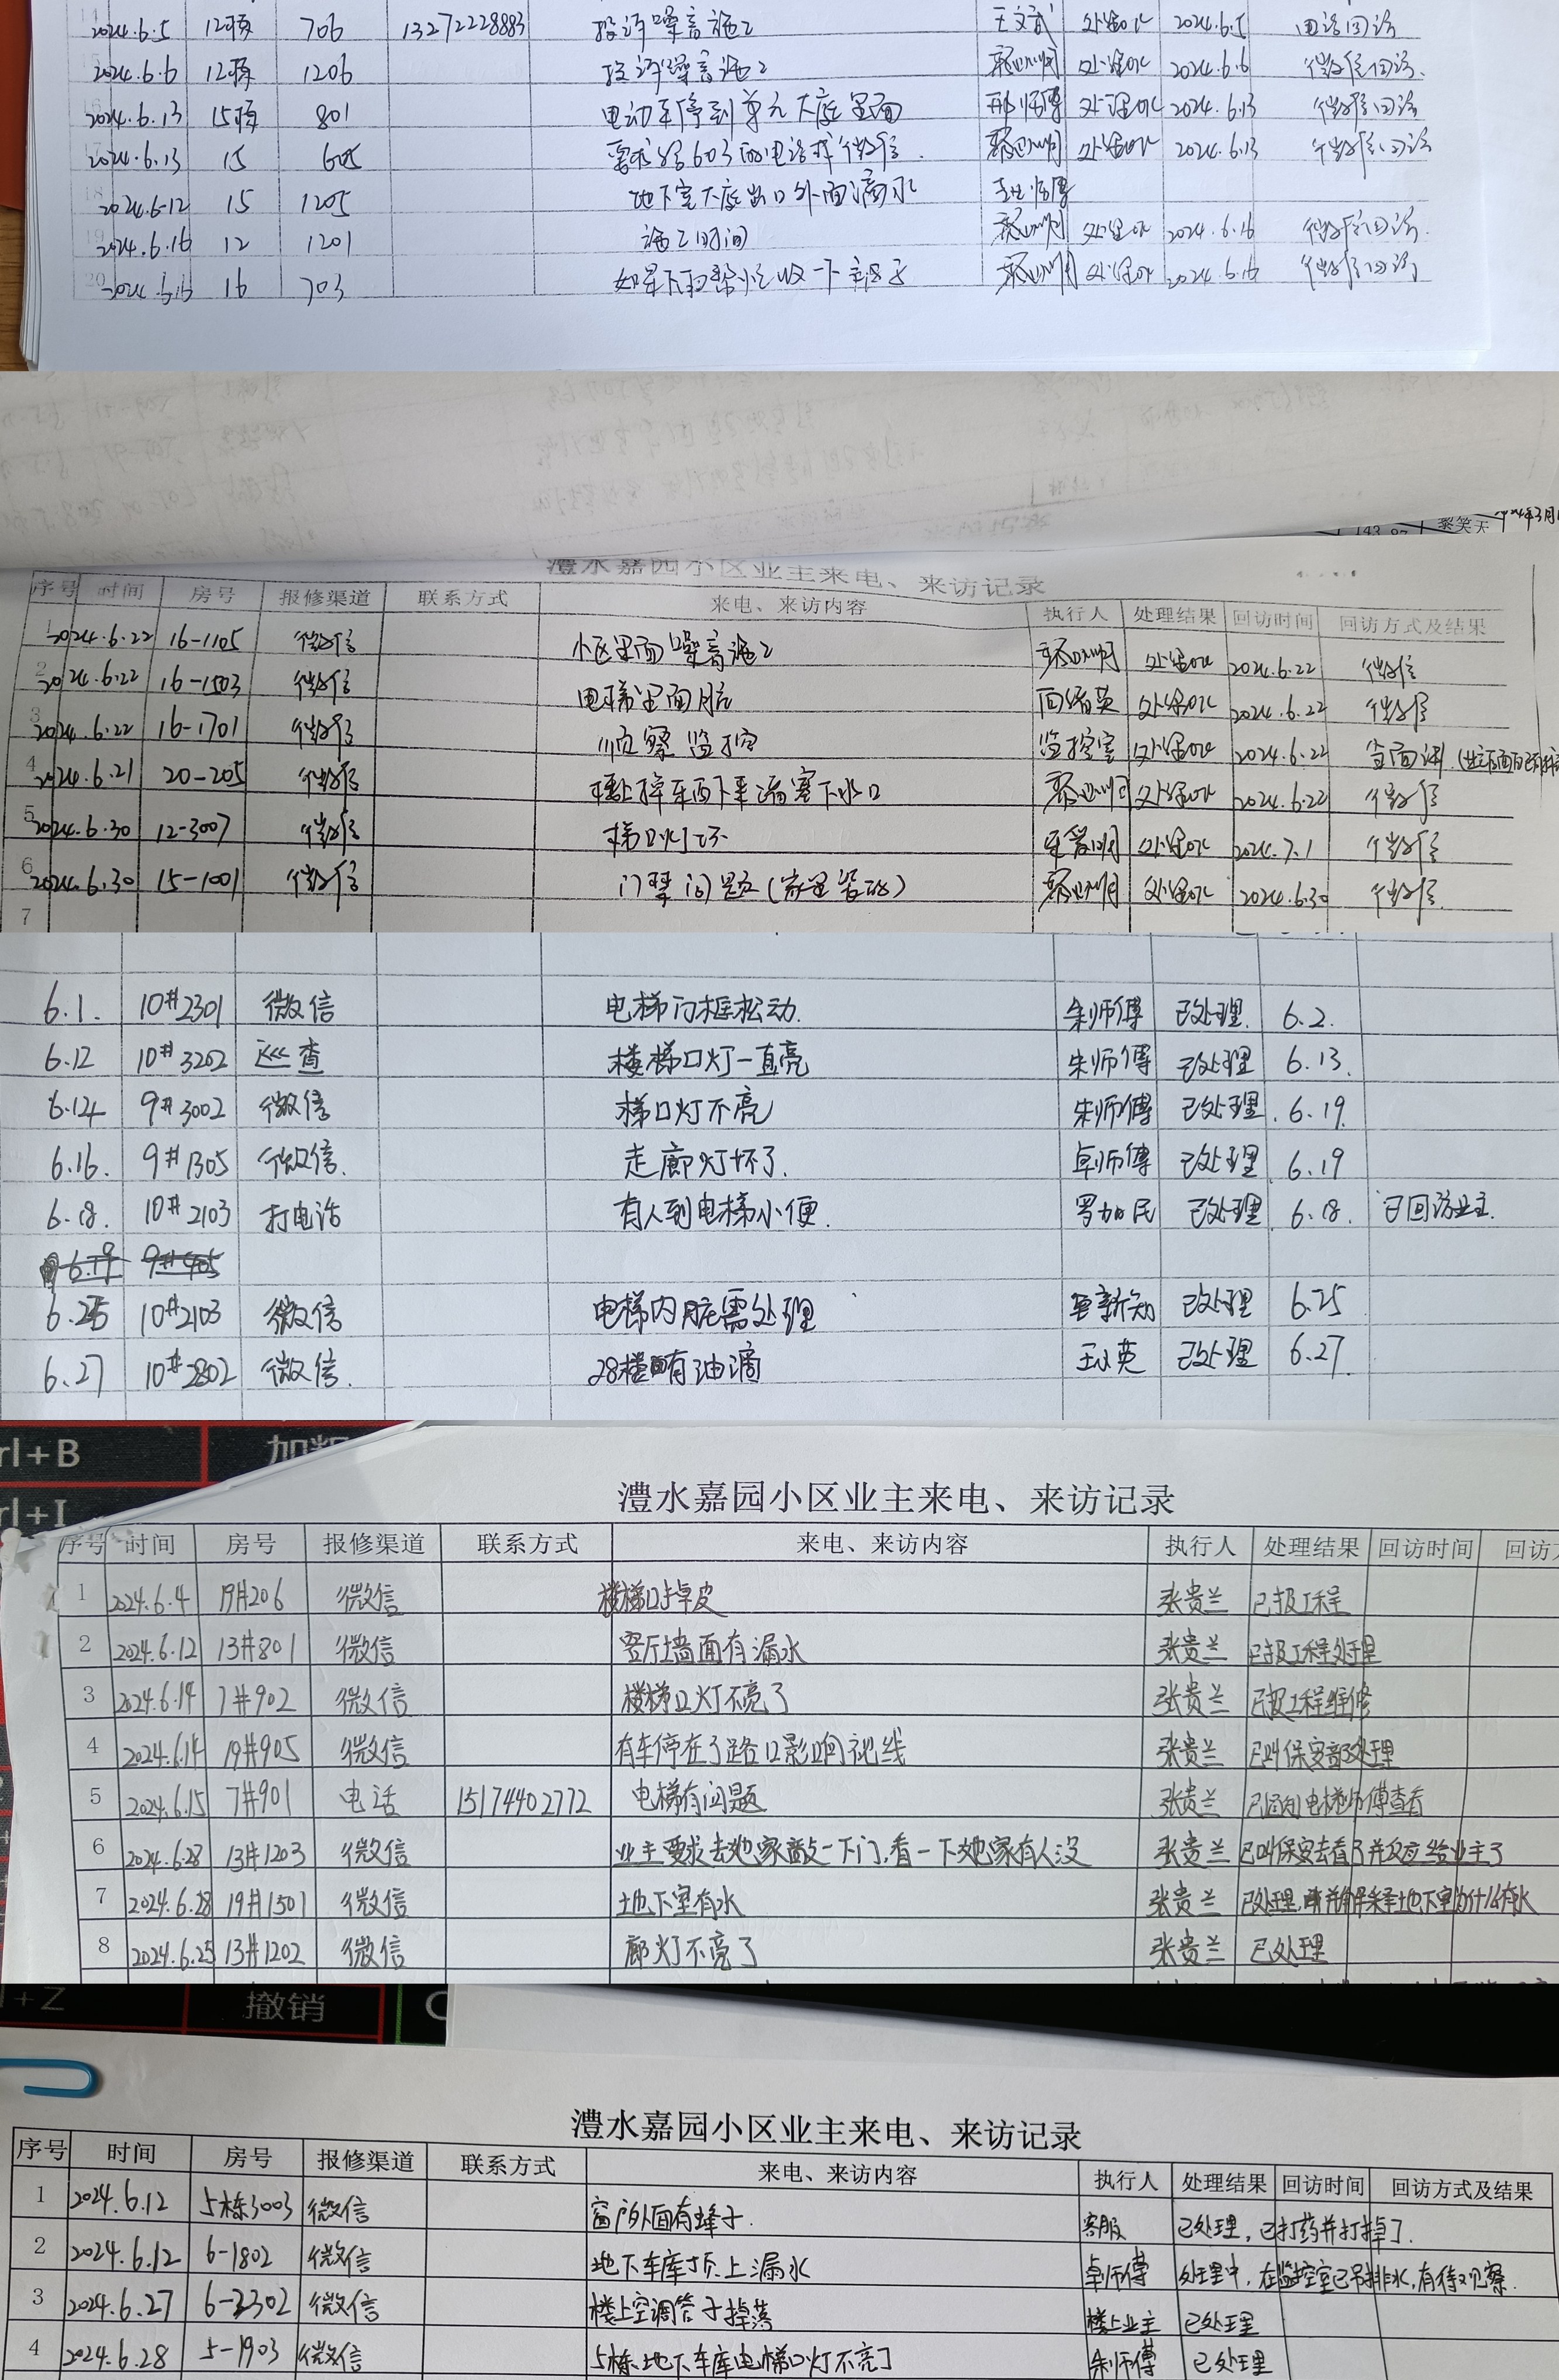 2024.6.5 12栋 706 13272228883 投诉噪音施工 王文武 处理OK 2024.6.5 电话回访
2024.6.6 12栋 1206 投诉噪音施工 处理OK 2024.6.6 微信回访.
2024.6.13 15栋 801 电动车停到单元大厅里面 邢师傅 处理OK 2024.6.13 微信回访
2024.6.13 15 605 要求给603的电话或微信. 处理OK 2024.6.13 微信回访
2024.6.12 15 1205 地下室大厅出口外面滴水 师傅
2024.6.16 12 1201 施工时间 处理OK 2024.6.16 微信回访.
2024.6.16 16 703 如果下雨帮忙收一下被子 处理OK 2024.6.16 微信回访
黎笑天
澧水嘉园小区业主来电、来访记录
序号 时间 房号 报修渠道 联系方式 来电、来访内容 执行人 处理结果 回访时间 回访方式及结果
1 2024.6.22 16-1105 微信 小区里面噪音施工 处理OK 2024.6.22 微信
2 2024.6.22 16-1503 微信 电梯里面脏 处理OK 2024.6.22 微信
3 2024.6.22 16-1701 微信 监控 监控室 处理OK 2024.6.22 当面谈.
4 2024.6.21 20-205 微信 楼上掉东西下来 塞下水口 处理OK 2024.6.22 微信
5 2024.6.30 12-3007 微信 梯口灯坏 处理OK 2024.7.1 微信
6 2024.6.30 15-1001 微信 门 问题 处理OK 2024.6.30 微信.
7
6.1. 10#2301 微信 电梯门框松动. 朱师傅 已处理. 6.2.
6.12 10#3202 巡查 楼梯口灯一直亮 朱师傅 已处理 6.13.
6.14 9#3002 微信 梯口灯不亮 朱师傅 已处理. 6.19.
6.16. 9#1305 微信. 走廊灯坏了. 卓师傅 已处理 6.19
6.18. 10#2103 打电话 有人到电梯小便. 罗加民 已处理 6.18. 已回访业主.
6.19 9#405
6.25 10#2103 微信 电梯内脏需处理 覃新知 已处理 6.25
6.27 10#2802 微信. 28楼有油滴 英 已处理 6.27.
rl+B 加粗
rl+I
澧水嘉园小区业主来电、来访记录
序号 时间 房号 报修渠道 联系方式 来电、来访内容 执行人 处理结果 回访时间 回访方
1 2024.6.4 19#206 微信 楼梯口掉皮 张贵兰 已报工程
2 2024.6.12 13#801 微信 客厅墙面有漏水 张贵兰 已报工程处理
3 2024.6.14 7#902 微信 楼梯口灯不亮了 张贵兰 已报工程维修
4 2024.6.14 19#905 微信 有车停在了路口影响视线 张贵兰 已叫保安部处理
5 2024.6.15 7#901 电话 15174402772 电梯有问题 张贵兰 已通知电梯师傅查看
6 2024.6.28 13#1203 微信 业主要求去她家敲一下门,看一下她家有人没 张贵兰 已叫保安去看了并反应给业主了
7 2024.6.28 19#1501 微信 地下室有水 张贵兰 已处理,并解释地下室为什么有水
8 2024.6.25 13#1202 微信 廊灯不亮了 张贵兰 已处理
+Z 撤销 C
澧水嘉园小区业主来电、来访记录
序号 时间 房号 报修渠道 联系方式 来电、来访内容 执行人 处理结果 回访时间 回访方式及结果
1 2024.6.12 5栋3003 微信 窗户外面有蜂子. 客服 已处理,已打药并打掉了.
2 2024.6.12 6-1802 微信 地下车库顶上漏水 卓师傅 处理中,在监控室已吊排水,有待观察.
3 2024.6.27 6-2302 微信 楼上空调管子掉落 楼上业主 已处理
4 2024.6.28 5-1903 微信 5栋地下车库电梯口灯不亮了 朱师傅 已处理